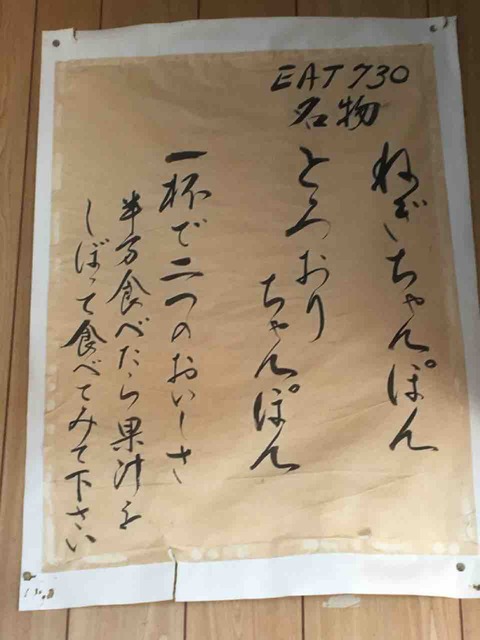 EAT730
名物
ねぎちゃんぽん
とろおり
ちゃんぽん
一杯で二つのおいしさ
半分食べたら果汁を
しぼって食べてみて下さい